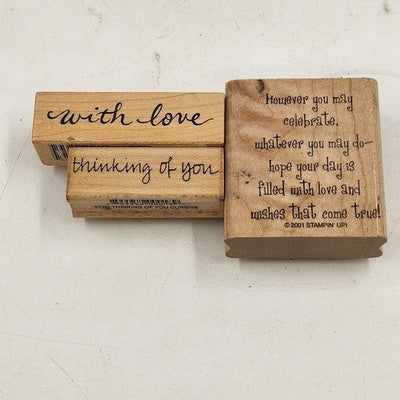 with love
thinking of you
THINKING OF YOU CURSIVE
However you may
celebrate,
whatever you may do–
hope your day is
filled with love and
wishes that come true!
© 2001 STAMPIN' UP!